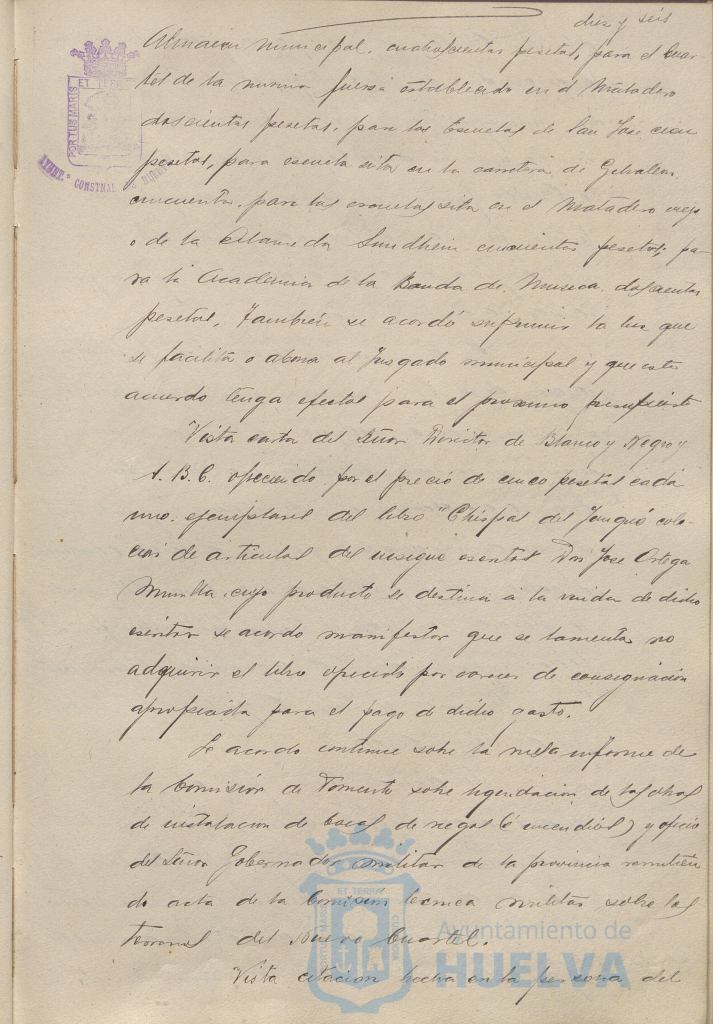 diez y seis
Almacen municipal, cuatrocientas pesetas, para el Cuar-
tel de la misma fuerza establecido en el Matadero
doscientas pesetas, para las Escuelas de San Jose cien
pesetas, para escuela sita en la carretera de Gibraleon
cincuenta, para las escuelas sita en el Matadero viejo
o de la Alameda Sundheim cincuentas pesetas, pa-
ra la Academia de la Banda de Musica doscientas
pesetas, También se acordó suprimir la luz que
se facilita o abona al Juzgado municipal y que este
acuerdo tenga efectos para el proximo presupuesto
Vista carta del Señor Director de Blanco y Negro y
A. B. C. ofreciendo por el precio de cinco pesetas cada
uno, ejemplares del libro "Chispas del Yunque colec-
cion de articulos del insigne escritor Don Jose Ortega
Munilla, cuyo producto se destina á la viuda de dicho
escritor se acordo manifestar que se lamenta no
adquirir el libro ofrecido por carecer de consignación
apropiada para el pago de dicho gasto.
Se acordo continue sobre la mesa informe de
la Comisión de Fomento sobre liquidacion de las obras
de instalacion de bocas de riegos (é incendios) y oficio
del Señor Gobernador militar de la provincia remitien-
do acta de la Comisión tecnica militar sobre los
terrenos del Nuevo Cuartel.
Vista citacion hecha en la persona del
PORTUS MARIS ET TERRAE
AYUNT.º CONSTNAL
PORTUS MARIS ET TERRAE CUSTODIA
Ayuntamiento de
HUELVA